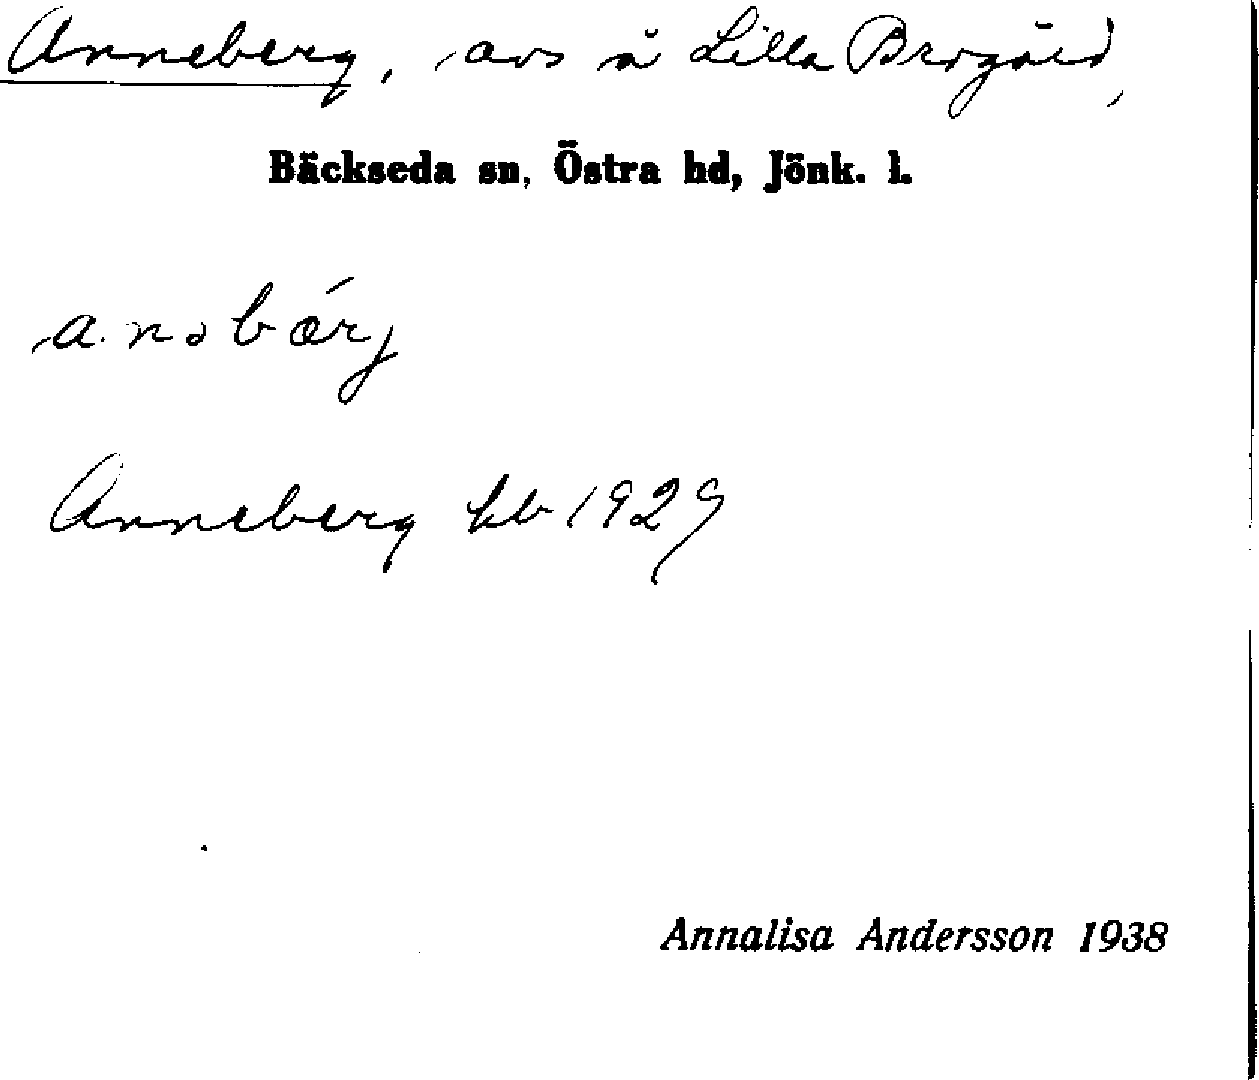 Anneberg, avs å Lilla Brogård,
Bäckseda sn, Östra hd, Jönk. l.
a.nəbǽrj
Anneberg kb 1929
Annalisa Andersson 1938